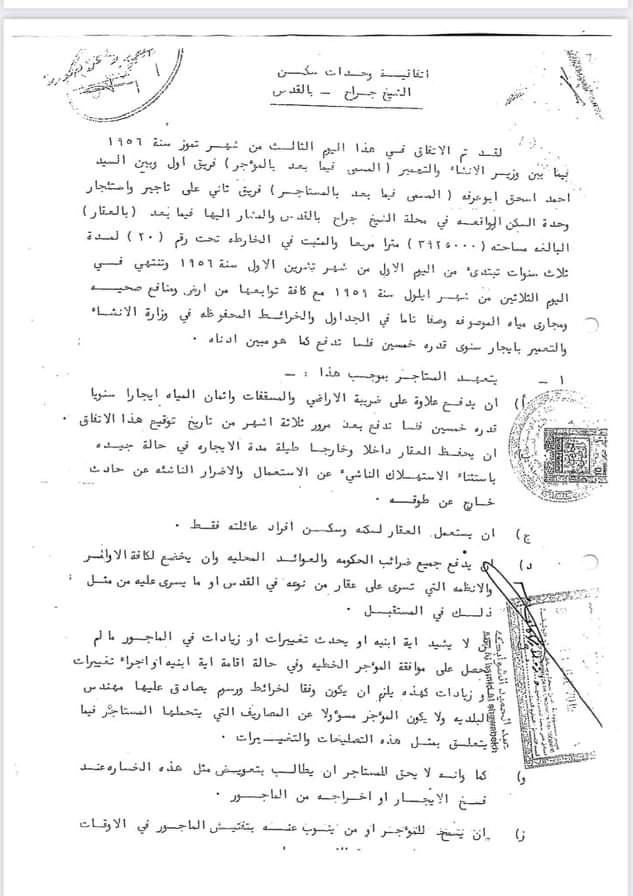 اتفاقية وحدات سكن
الشيخ جراح ــ بالقدس
لقد تم الاتفاق في هذا اليوم الثالث من شهر تموز سنة ١٩٥٦
فيما بين وزير الانشاء والتعمير ( المسمى فيما بعد بالمؤجر ) فريق اول وبين السيد
احمد اسحق ابوعرفه ( المسمى فيما بعد بالمستاجر ) فريق ثاني على تاجير واستئجار
وحدة السكن الواقعه في محلة الشيخ جراح بالقدس والمشار اليها فيما بعد ( بالعقار )
البالغه مساحته ( ٣٩٢٥٠٠٠ ) مترا مربعا والمثبت في الخارطه تحت رقم ( ٢٠ ) لمدة
ثلاث سنوات تبتدئ من اليوم الاول من شهر تشرين الاول سنة ١٩٥٦ وتنتهي في
اليوم الثلاثين من شهر ايلول سنة ١٩٥٩ مع كافة توابعها من ارض ومنافع صحيه
ومجارى مياه الموصوفه وصفا تاما في الجداول والخرائط المحفوظه في وزارة الانشاء
والتعمير بايجار سنوى قدره خمسين فلسا تدفع كما هو مبين ادناه ٠
١ ــ يتعهد المستاجر بموجب هذا : ــ
أ) ان يدفع علاوة على ضريبة الاراضي والمسقفات واثمان المياه ايجارا سنويا
قدره خمسين فلسا تدفع بعد مرور ثلاثة اشهر من تاريخ توقيع هذا الاتفاق ٠
ان يحفظ العقار داخلا وخارجا طيلة مدة الايجاره في حالة جيده
باستثناء الاستهلاك الناشيء عن الاستعمال والاضرار الناشئه عن حادث
خارج عن طوقه ٠
ج) ان يستعمل العقار لسكنه وسكن افراد عائلته فقط ٠
د) ان يدفع جميع ضرائب الحكومه والعوائد المحليه وان يخضع لكافة الاوامر
والانظمه التي تسرى على عقار من نوعه في القدس او ما يسرى عليه من مثل
ذلك في المستقبل ٠
لا يشيد اية ابنيه او يحدث تغييرات او زيادات في الماجور ما لم
يحصل على موافقة المؤجر الخطيه وفي حالة اقامة اية ابنيه او اجراء تغييرات
و زيادات كهذه يلزم ان يكون وفقا لخرائط ورسيم يصادق عليها مهندس
البلديه ولا يكون المؤجر مسؤولا عن المصاريف التي يتحملها المستاجر فيما
يتعلق بمثل هذه التصليحات والتغييرات ٠
و) كما وانه لا يحق للمستاجر ان يطالب بتعويض مثل هذه الخساره عند
فسخ الايجار او اخراجه من الماجور ٠
ز) ان يسمح للمؤجر او من ينوب عنه بتفتيش الماجور في الاوقات